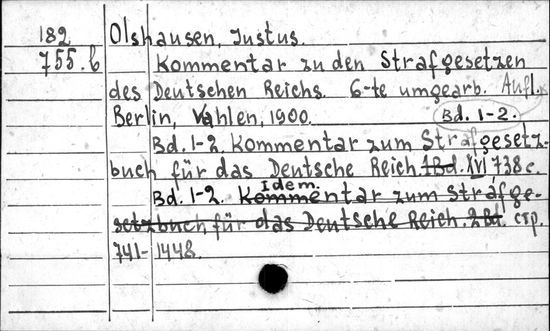 182 Olshausen, Justus.
755.b Kommentar zu den Strafgesetzen
des Deutschen Reichs. 6-te umgearb. Aufl.
Berlin, Vahlen, 1900. Bd. 1-2.
Bd. 1-2. Kommentar zum Strafgesetz-
buch für das Deutsche Reich. 1Bd. XVI, 738 c.
Idem.
Bd. 1-2. Kommentar zum Strafge-
setzbuch für das Deutsche Reich. 2Bd. стр.
741-1448.